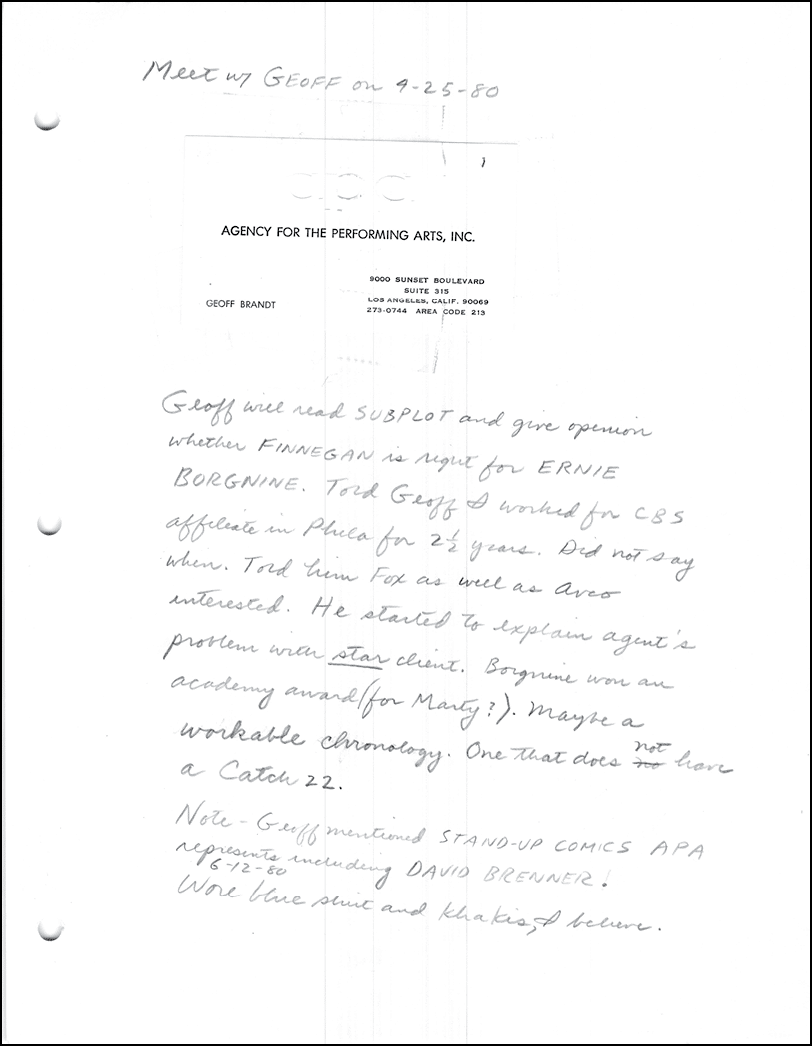 Meet w/ GEOFF on 9-25-80
apa
AGENCY FOR THE PERFORMING ARTS, INC.
9000 SUNSET BOULEVARD
SUITE 315
LOS ANGELES, CALIF. 90069
GEOFF BRANDT
273-0744 AREA CODE 213
Geoff will read SUBPLOT and give opinion
whether FINNEGAN is right for ERNIE
BORGNINE. Told Geoff I worked for CBS
affiliate in Phila for 2½ years. Did not say
when. Told him Fox as well as Avco
interested. He started to explain agent's
problem with star client. Borgnine won an
academy award (for Marty?). Maybe a
workable chronology. One that does no not have
a Catch 22.
Note - Geoff mentioned STAND-UP COMICS APA
represents including DAVID BRENNER!
6-12-80
Wore blue shirt and khakis, I believe.